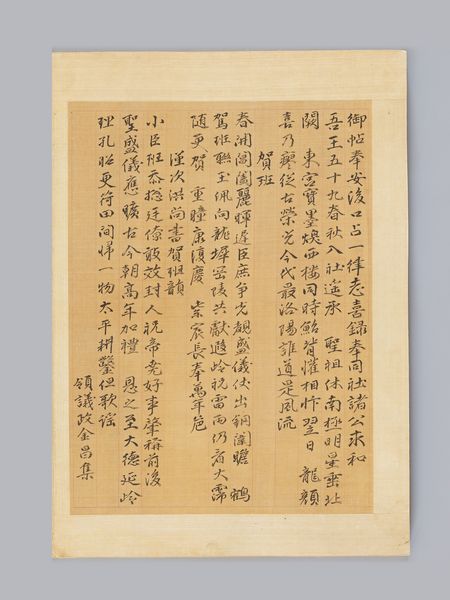 御帖奉安後口占一律志喜錄奉同社諸公求和
吾王五十九春秋入社遙承 聖祖休南極明星垂北
闕 東宮寶墨煥西樓同時鮐背懽相忭翌日 龍顏
喜乃瘳從古榮光今代最洛陽誰道是風流
賀班
春閶闔麗暉遲臣庶爭先覩盛儀仗出銅闈瞻 鶴
駕班聯玉佩向龍墀岡陵共獻遐岭祝雷雨仍看大霈
隨更賀 重瞳康復慶 紫宸長奉萬年巵
謹次洪尚書賀班韻
小臣班忝摠廷僚願效封人祝帝堯好事肇稱前後
聖盛儀應曠古今朝高年加禮 恩之至大德延岭
理孔昭更符田間歸一物太平耕鑿但歌謠
領議政金昌集